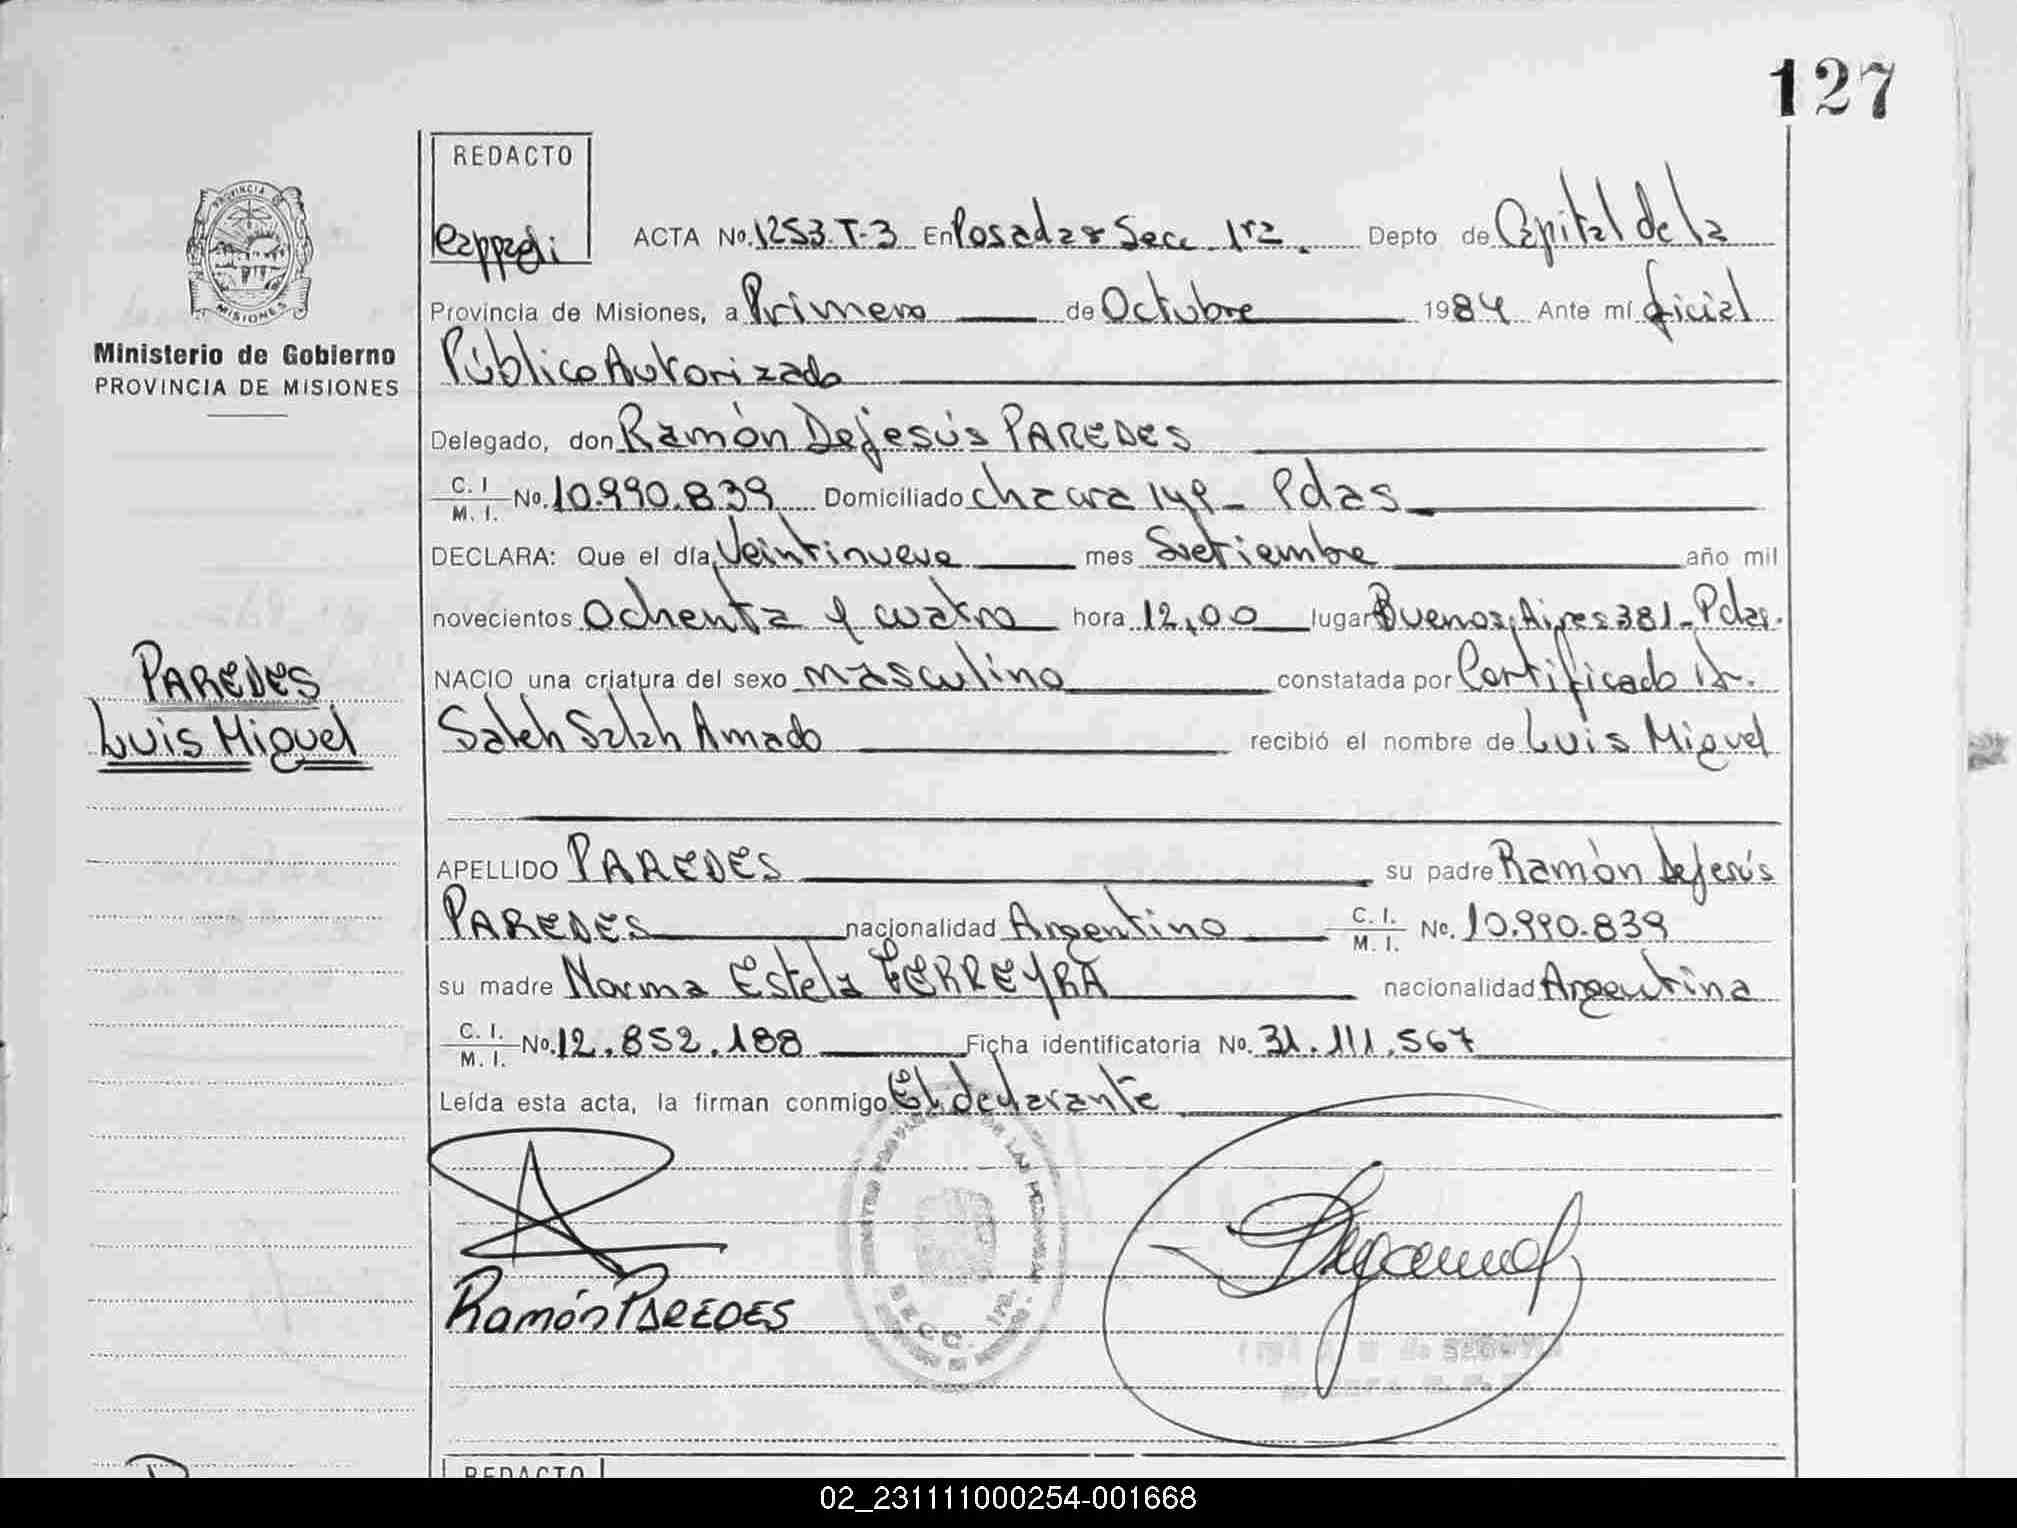 127
REDACTO
PROVINCIA DE
MISIONES
Ministerio de Gobierno
PROVINCIA DE MISIONES
ACTA No. 1253. T-3 En Posadas Secc. 1ra. Depto de Capital de la
Provincia de Misiones, a Primero de Octubre 1984 Ante mí Oficial
Público Autorizado
Delegado, don Ramón Dejesús PAREDES
C. I. M. I. No. 10.990.839 Domiciliado chacra 149- Pdas
DECLARA: Que el día Veintinueve mes Setiembre año mil
novecientos Ochenta y cuatro hora 12,00 lugar Buenos Aires 381- Pdas.
NACIO una criatura del sexo masculino constatada por Certificado Dr.
PAREDES
Luis Miguel
Saleh Salah Amado recibió el nombre de Luis Miguel
APELLIDO PAREDES su padre Ramón Dejesús
PAREDES nacionalidad Argentino C. I. M. I. No. 10.990.839
su madre Norma Estela FERREYRA nacionalidad Argentina
C. I. M. I. No. 12.852.188 Ficha identificatoria No. 31.111.567
Leída esta acta, la firman conmigo El declarante
Ramón PAREDES
SECC. 1ra.
REDACTO
02_231111000254-001668